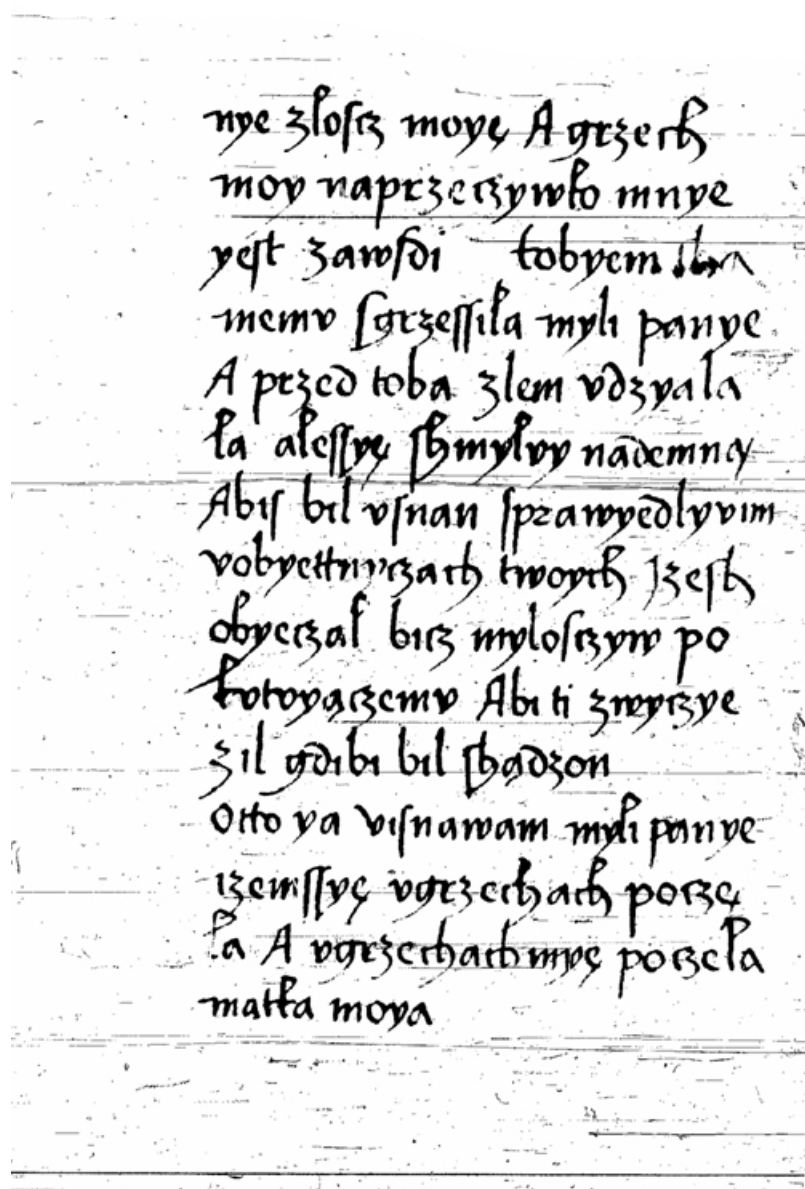 nye złoſcz moyę A grzech
moy naprzeczywko mnye
yeſt zawſdi tobyem
memv ſgrzeſſiła myli panye
A przed toba zlem vdzyala
ła aleſſyę ſhmyłvy nademną
Abiſ bil vſnan ſprawyedlyvim
vobyettnyczach twoych Jzeſh
obyeczal bicz myloſczyw po
kvtvyączemv Abi ti zwyczye
zil gdibi bil ſhądzon
Otto ya viſnawam myli panye
izemſſyę vgrzechach poczę
ła A vgrzechach myę poczeła
matka moya